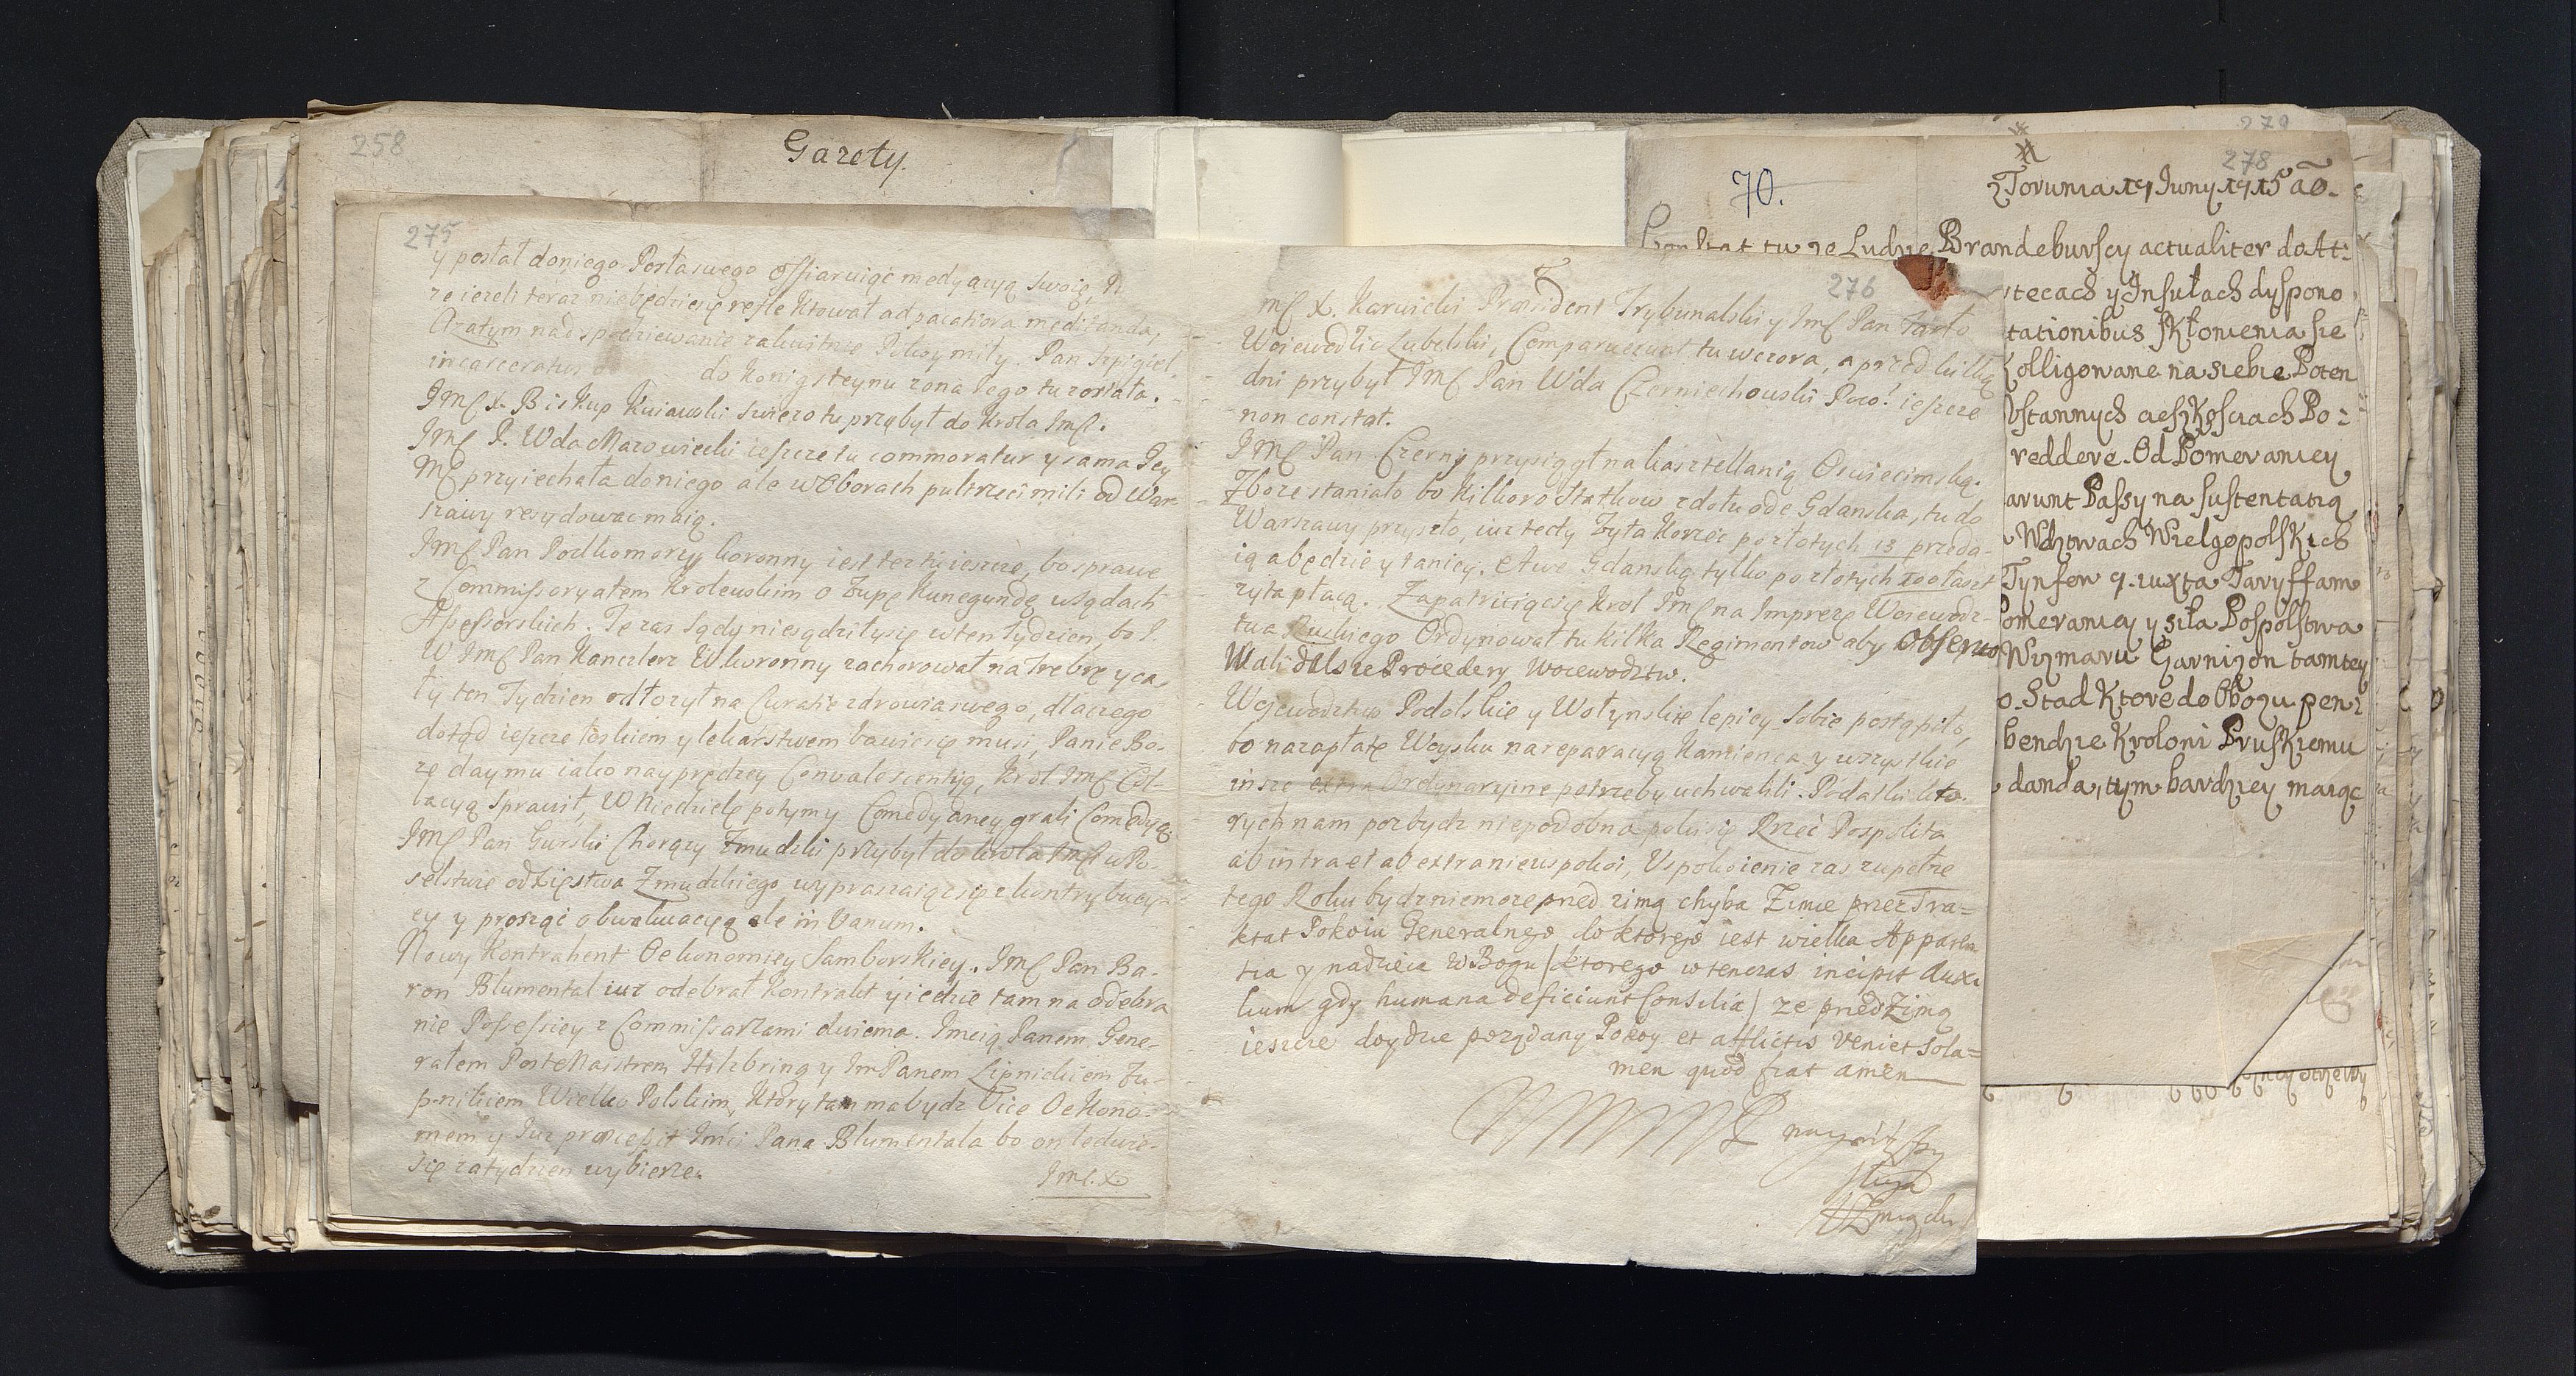 258
Gazety.
275
y posłał do niego Posła swego offiaruiąc medyacyą swoię,
ze iezeli teraz niebędzie się reflektował ad pacatiora meditanda,
Azatym nad spodziewanie zakwitnie Pokoy miły. Pan Szpigiel
incarceratus do Konigsteynu zona Iego tu została.
Imſ X. Biskup Kuiawski swiezo tu przybył do Krola Imſ.
Imſ P. Wda Mazowiecki ieszcze tu commoratur y sama Iey
Mſ przyiechała do niego ale w Oborach pułtrzeci mili od War-
szawy resydowac maią.
Imſ Pan Podkomorzy Koronny iest tez tu ieszcze, bo sprawę
z Commissoryatem Krolewskim o Zupę Kunegundę w Sądach
Assessorskich. Te zas Sądy niesądziły się w ten Tydzien, bo I.
W Imſ Pan Kanclerz W. Koronny zachorował na Febrę y ca-
ły ten Tydzien odłozył na Curatię zdrowia swego, dlaczego
dotąd ieszcze łoszkiem y lekarstwem bawic się musi, Panie Bo-
ze day mu iako nayprędzey Convalescentię, Krol Imſ Col-
lacyą sprawił, W Niedzielę potym y Comedyanci grali Comedyą.
Imſ Pan Gurski Chorązy Zmudzki przybył do Krola Imſ w Po-
selstwie od Xięstwa Zmudzkiego wypraszaiąc się z kontrybucy-
ey y prosząc o Ewakuacyą ale in Vanum.
Nowy Kontrahent Oekonomiey Samborskiey. Imſ Pan Ba-
ron Blumental iuz odebrał Kontrakt y iedzie tam na odebra
nie Possessiey z Commissarzami dwiema. Imcią Panem Gene-
rałem Postemaistrem Holzbring y Im Panem Lipnickiem Zu-
pnikiem Wielko Polskim, Ktory tam ma bydz Vice Oekono-
mem y Iuz praecessit Imci Pana Blumentala bo on ledwie
się za tydzien wybierze.
Imſ. X.
276
Imſ X. Karwicki Praesident Trybunalski y Imſ Pan Tarło
Woiewodzic Lubelski, Comparuerunt tu wczora, a przed kilką
dni przybył Imſ Pan Wda Czerniechowski ieszcze
non constat.
Imſ Pan Czerny przysiągł na kasztellanią Oswiecimską.
Zboze staniało bo kilkoro Statkow z dołu ode Gdanska, tu do
Warszawy przyszło, iuz tedy Zyta Korzec po złotych 13 przeda-
ią a będzie y taniey. A we Gdansku tylko po złotych 200 łaszt
zyta płacą. Zapatruiąc się Krol Imſ na Imprezę Woiewodz-
twa Ruskiego Ordynował tu kilka Regimentow aby Observo
Wali dalsze Procedery Woiewodztw.
Woiewodztwo Podolskie y Wołynskie lepiey sobie postąpiło,
bo na zapłatę Woysku na reparacyą Kamienca y wszystkie
insze extra Ordynaryine potrzeby uchwalili. Podatki kto-
rych nam pozbydz niepodobna poki się Rzeć Pospolita
ab intra et ab extra nieuspokoi, Uspokoienie zas zupełne
tego Roku bydz niemoze przed zimą chyba Zimie przez Tra=
ktat Pokoiu Generalnego do ktorego iest wielka Apparen
tia y nadzieia w Bogu / ktorego wtenczas incipit Auxi
lium gdy humana deficiunt Consilia / ze przed Zimą
ieszcze doydzie pozządany Pokoy et afflictis Veniet Sola=
men quod fiat amen
sługa
70.
279
278
z Torunia 19 Iuny 1715 ao.
tu ze Ludzie Brandeburscy actualiter do At:
tecach y Insułach dyspono
tationibus skłonienia sie
Kolligowane na siebie Poten
Ustannych cieszkosciach Po:
reddere. Od Pomeraniey
arunt Passy na sustentatią
Wdzowach Wielgopolskich
Tynfow 9. iuxta Taryffam
omeraniey y siła Pospolstwa
Wizmaru Garnizon tamtey
o. Stad Ktore do Obozu pen:
bendzie Krolowi Pruskiemu
danda, tym bardziey maiąc